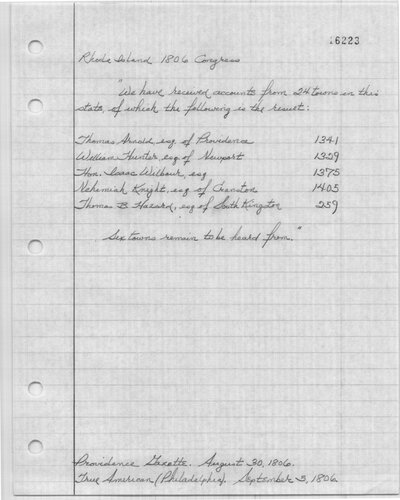 16223
Rhode Island 1806 Congress
"We have received accounts from 24 towns in this
state, of which the following is the result:
Thomas Arnold esq of Providence 1341
William Hunter esq of Newport 1329
Hon. Isaac Wilbour, esq 1375
Nehemiah Knight, esq of Cranston 1405
Thomas B Hazard, esq of South Kingston 259
Six towns remain to be heard from."
Providence Gazette. August 30, 1806.
True American (Philadelphia). September 5, 1806.